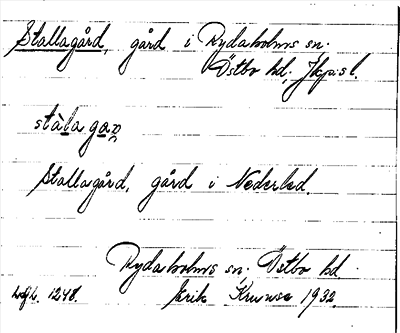 Stallagård, gård i Rydaholms sn.
Östbo hd, Jkp:s l.
stàla gaṇ
Stallagård, gård i Nederled.
Rydaholms sn, Östbo hd.
1248. Erik Krunse 1932.